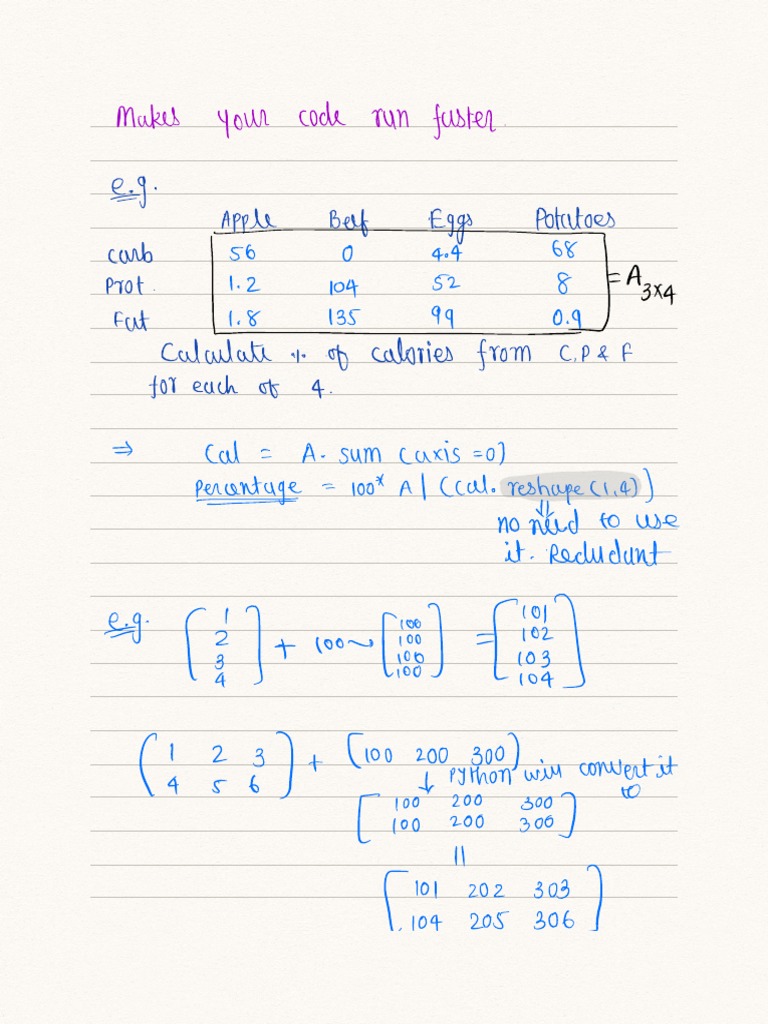 Makes your code run faster.
e.g.
Apple Beef Eggs Potatoes
Carb 56 0 4.4 68
Prot. 1.2 104 52 8 = A 3x4
Fat 1.8 135 99 0.9
Calculate % of calories from C, P & F
for each of 4.
⇒ Cal = A. sum (axis =0)
Percentage = 100* A / (cal. reshape (1,4))
⇓
no need to use
it. Redudant
e.g. [1 2 3 4] + 100 ⤳ [100 100 100 100] = [101 102 103 104]
[1 2 3
4 5 6] + [100 200 300]
↓ Python will convert it to
[100 200 300
100 200 300]
||
[101 202 303
104 205 306]